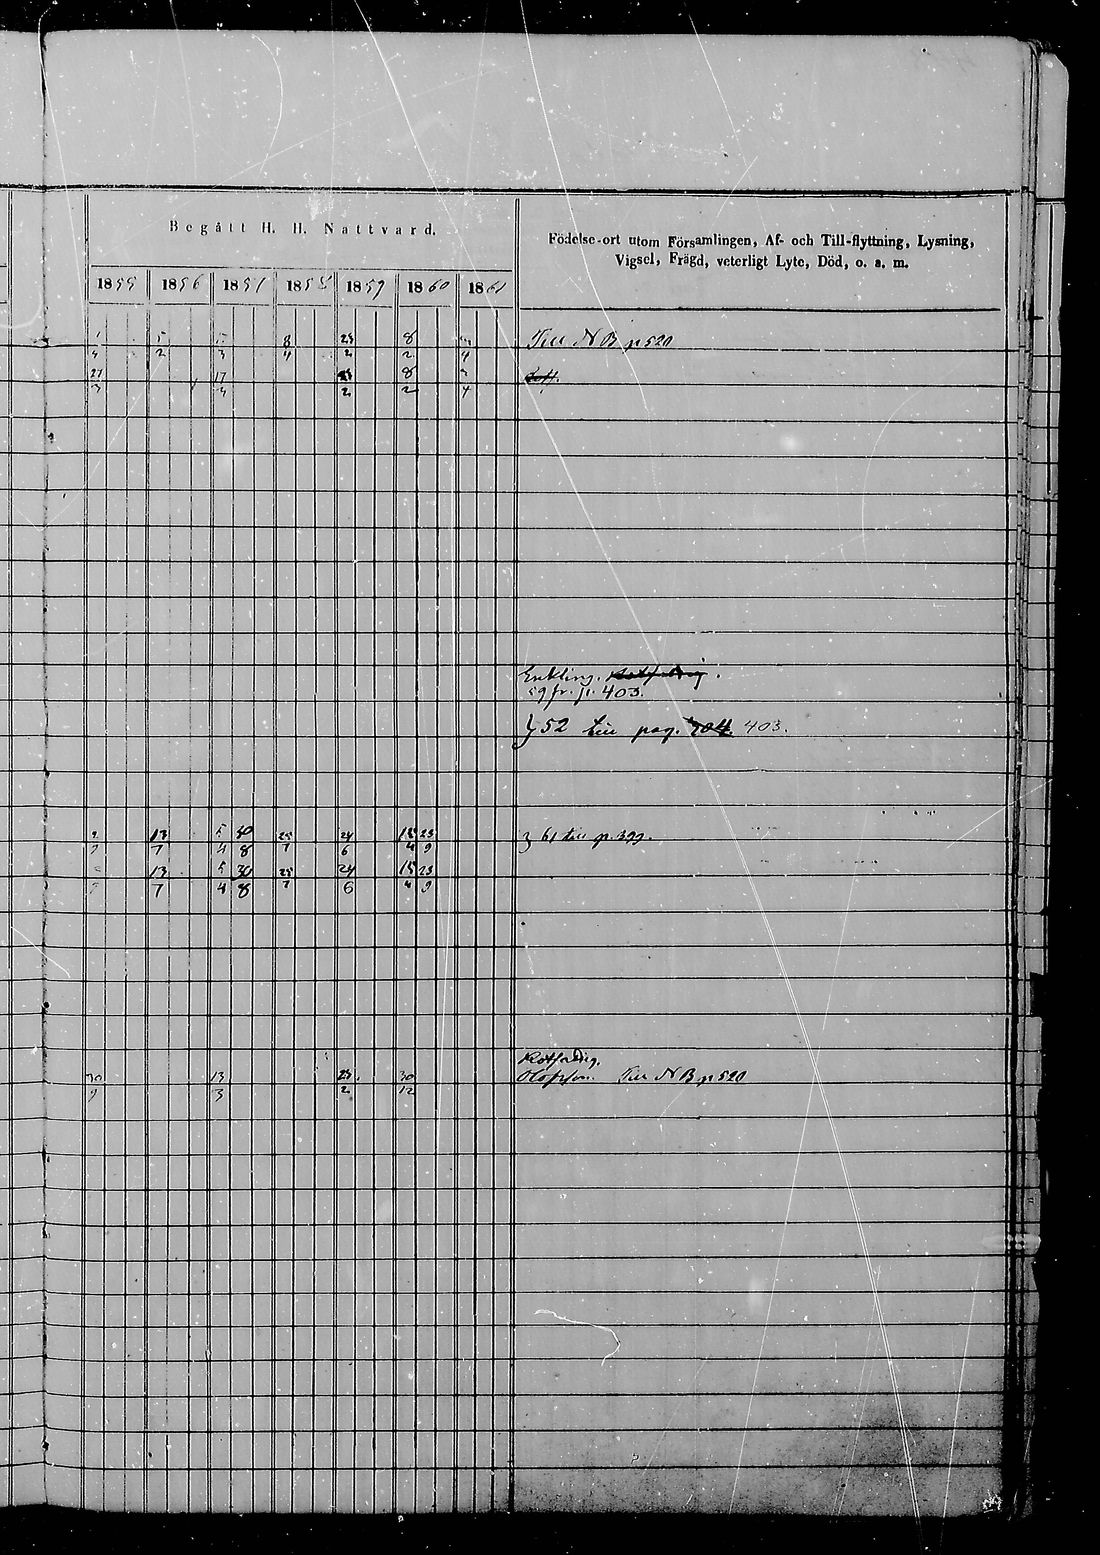 Begått H. H. Nattvard.
Födelse-ort utom Församlingen, Af- och Till-flyttning, Lysning,
Vigsel, Frägd, veterligt Lyte, Död, o. s. m.
1855 1856 1857 1858 1859 1860 1861
5 8 23 8 Till N B p 520
4 2 3 4 2 2 4
21 17 23 8
3 4 2 2 4
Enkling.
59 fr. p. 403.
52 till pag. 403.
13 5 30 25 24 15 23 61 till p. 399.
7 4 8 7 6 4 9
13 5 30 25 24 15 23
7 4 8 7 6 4 9
Rotfördig.
30 13 23 30 Till N B p 520
9 3 2 12